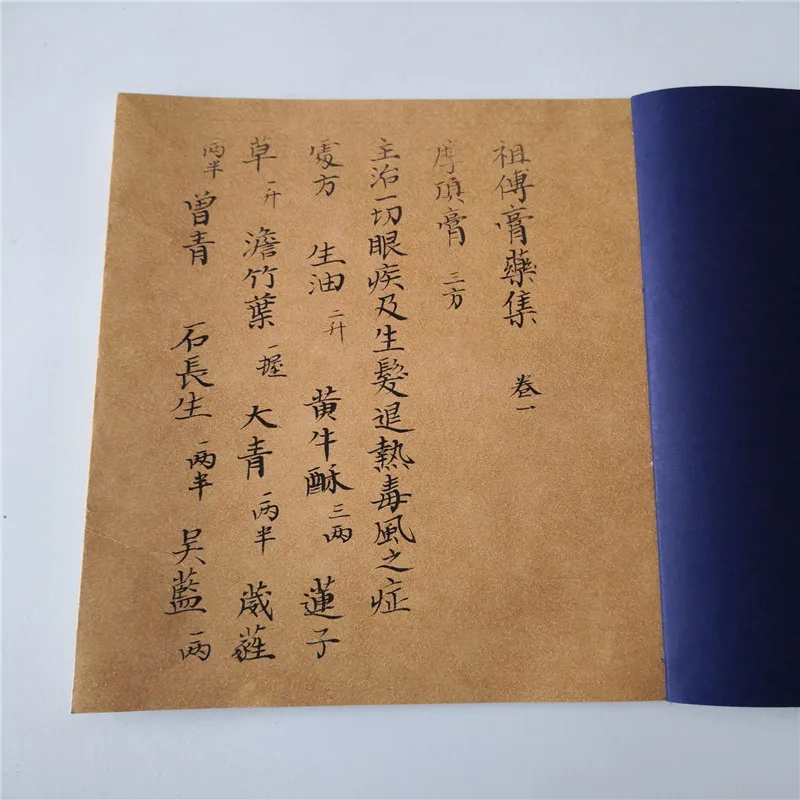 祖傅膏藥集 卷一
摩頂膏 三方
主治一切眼疾及生髮退熱毒風之症
處方 生油 二升 黄牛酥 三两 蓮子
草 一升 澹竹葉 一握 大青 一两半 葳蕤
两半 曾青 石長生 一两半 吴藍 一两